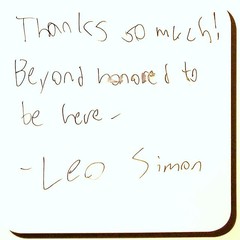 Thanks so much!
Beyond honored to
be here -
- Leo Simon